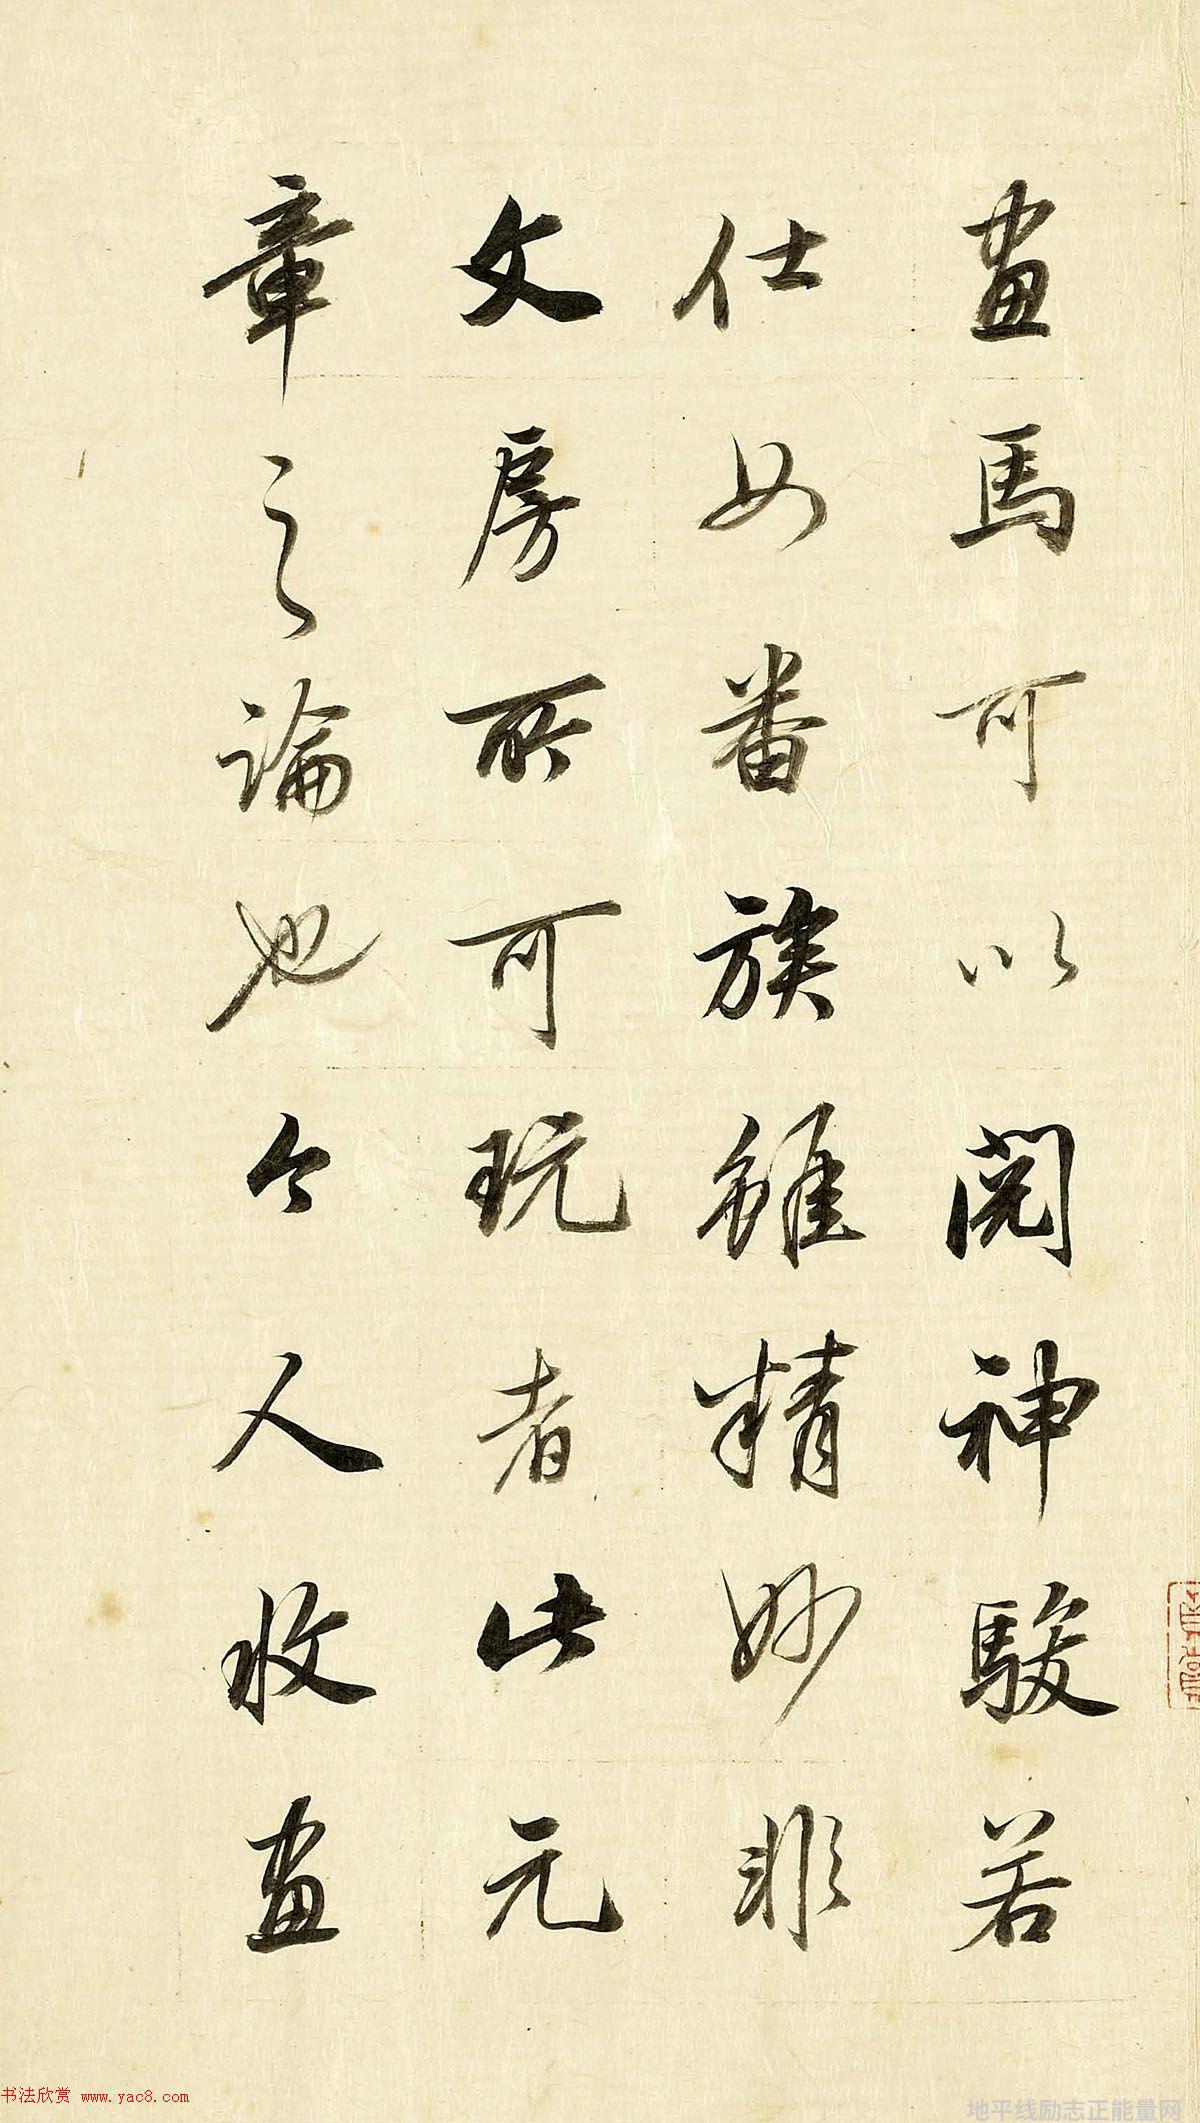 畫馬可以閱神駿若
仕女番族雖精妙非
文房所可玩者此元
章之論也今人收畫
书法欣赏 www.yac8.com
地平线励志正能量网